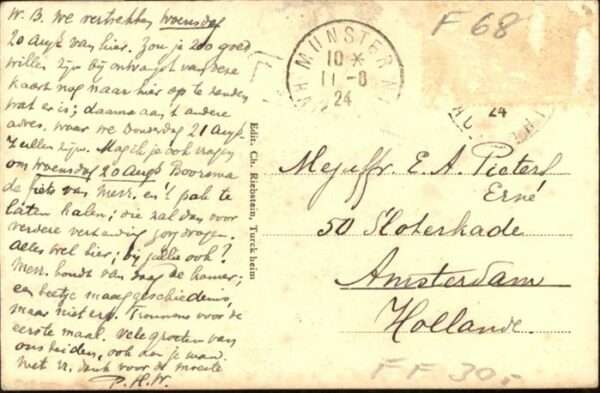 W. B. We vertrekken Woensdag
20 Augs van hier. Zou je zoo goed
willen zijn bij ontvangst van deze
kaart nog naar hier op te zenden
wat er is; daarna aan 't andere
adres. waar we Donderdag 21 Augs
zullen zijn. Mag ik je ook vragen
om Woensdag 20 Augs Boorsma
de fiets van Mevr. en 't pak te
laten halen; die zal dan voor
verdere verzending zorgdragen.
Alles wel hier; bij jullie ook?
Mevr. houdt van daag de kamer;
een beetje maaggeschiedenis,
maar niet erg. Trouwens voor de
eerste maal. Vele groeten van
ons beiden, ook aan je man.
Met vr. dank voor de moeite
P.H.W.
Edit. Ch. Riebstein, Turckheim
MUNSTER
10 *
11-8
24
F 68
24
Mejuffr. E. A. Pieters
Erné
50 Sloterkade
Amsterdam
Hollande.
FF 30.-